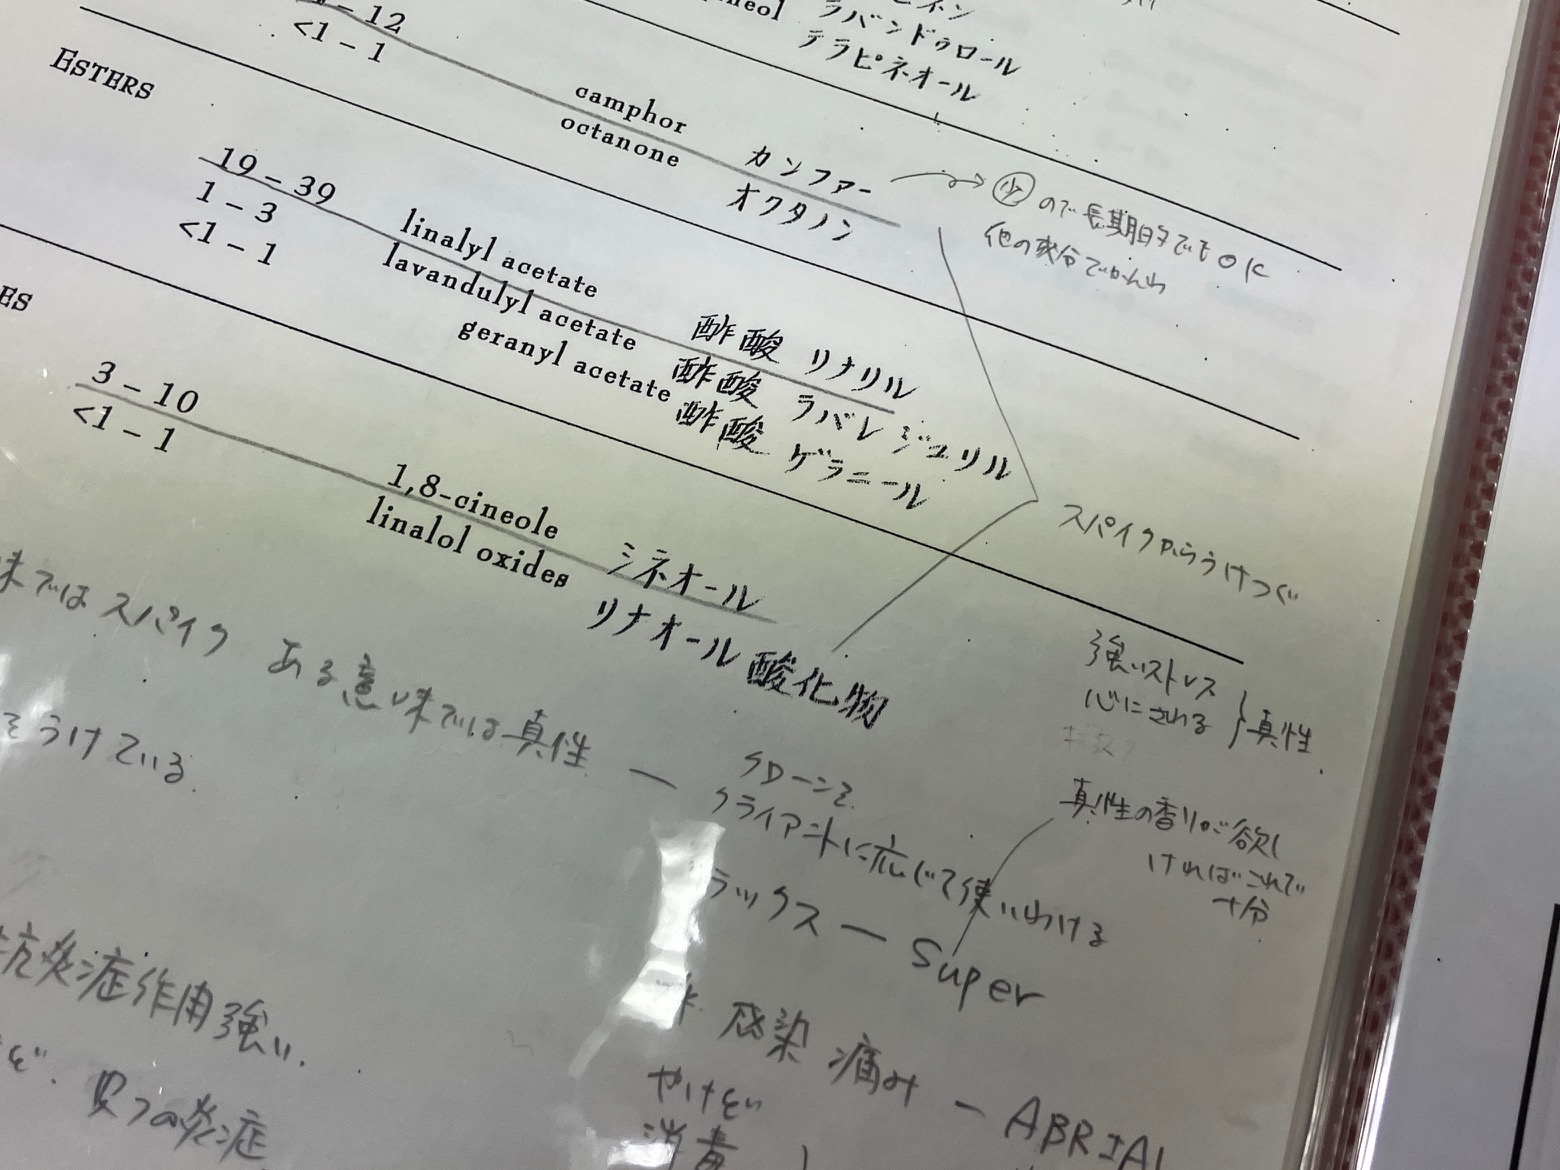 ラバンドゥロール
テラピネオール
12
<1 – 1
camphor カンファー
octanone オクタノン
少 ので長期的でもOK
他の成分でかんわ
ESTERS
19 – 39 linalyl acetate 酢酸 リナリル
1 – 3 lavandulyl acetate 酢酸 ラバレジュリル
<1 – 1 geranyl acetate 酢酸 ゲラニール
スパイクからうけつぐ
ES
3 – 10 1,8-cineole シネオール
<1 – 1 linalol oxides リナオール酸化物
強いストレス
心にされる
真性
味ではスパイク ある意味では真性 —
クローンを
クライアントに応じて使いわける
うけている
真性の香りが欲し
ければこれで
十分
ラックス — super
抗炎症作用強い.
感染 痛み — ABRIAL
やけど
消毒
の炎症